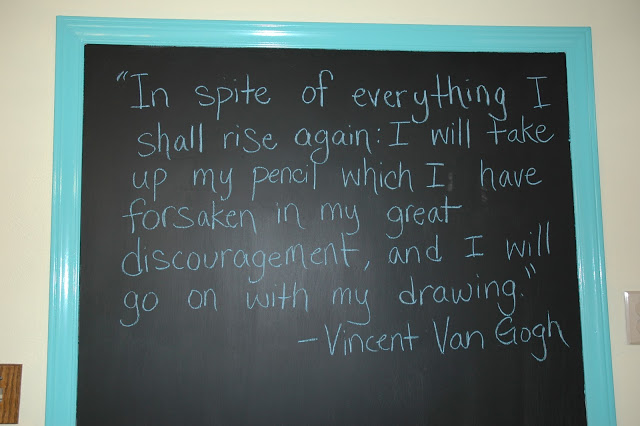 "In spite of everything I
shall rise again: I will take
up my pencil which I have
forsaken in my great
discouragement, and I will
go on with my drawing."
-Vincent Van Gogh